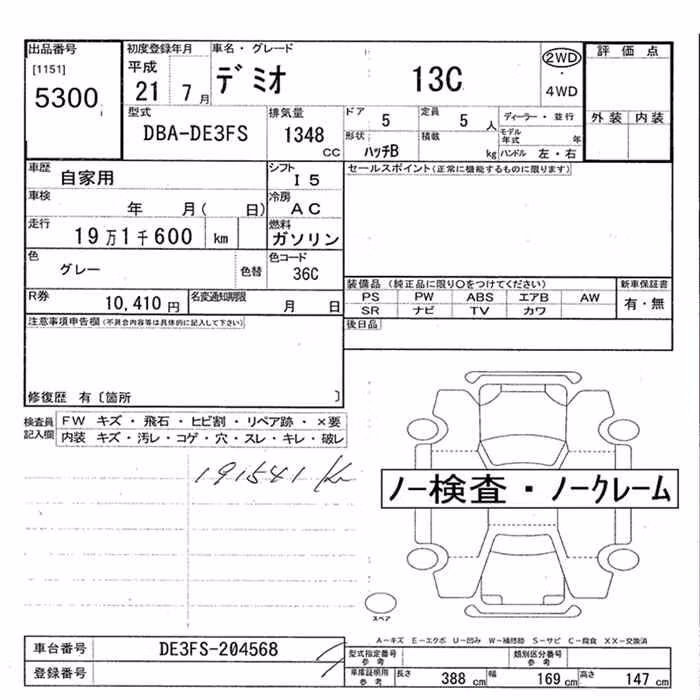 出品番号 初度登録年月 車名・グレード 評価点
[1151] 平成 デミオ 13C 2WD
5300 21 7月 4WD
型式 排気量 ドア 定員 ディーラー・並行 外装 内装
DBA-DE3FS 1348 CC 5 5人 モデル年式 年
形状 積載 ハンドル 左・右
ハッチB kg
車歴 自家用 シフト I5 セールスポイント(正常に機能するものに限ります)
車検 年 月( 日) 冷房 AC
走行 19万1千600 km 燃料 ガソリン
色 グレー 色替 色コード 36C
装備品 (純正品に限り○をつけてください) 新車保証書
PS PW ABS エアB AW 有・無
SR ナビ TV カワ
R券 10,410円 名変通知期限 月 日
後日品
注意事項申告欄(不具合内容等は具体的に記入して下さい)
修復歴 有〔箇所 〕
検査員記入欄 FW キズ・飛石・ヒビ割・リペア跡・×要
内装 キズ・汚レ・コゲ・穴・スレ・キレ・破レ
191541 Km
ノー検査・ノークレーム
スペア
A-キズ E-エクボ U-凹み W-補修跡 S-サビ C-腐食 XX-交換済
車台番号 DE3FS-204568
登録番号
型式指定番号 参考 類別区分番号 参考
車庫証明用 参考 長さ 388 cm 幅 169 cm 高さ 147 cm